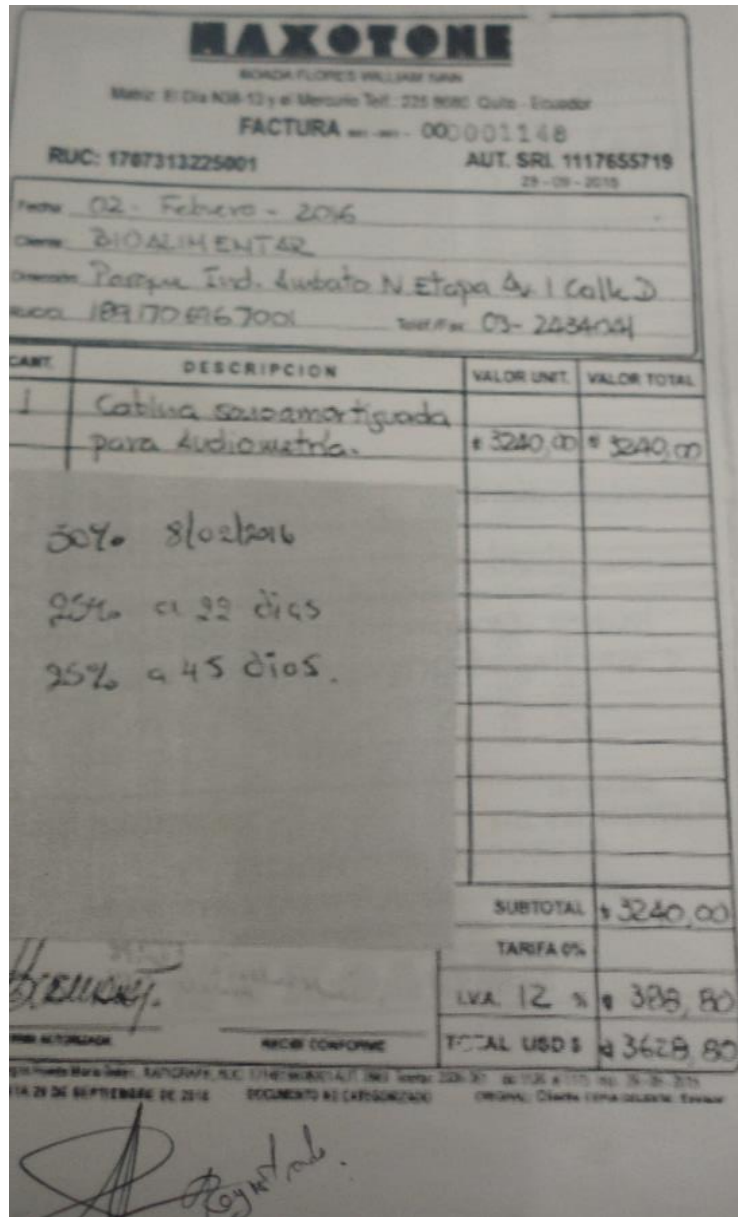 MAXOTONE
BOADA FLORES WILLIAM IVAN
Matriz: El Dia N38-12 y el Mercurio Telf.: 225 9080 Quito - Ecuador
FACTURA 000001148
RUC: 1707313225001 AUT. SRI. 1117655719
29 - 09 - 2015
Fecha: 02 - Febrero - 2016
Cliente: BIOALIMENTAR
Dirección: Parque Ind. Ambato IV Etapa Av. 1 Calle D
03-2434041
CANT. DESCRIPCION VALOR UNIT. VALOR TOTAL
1 Cabina sonoamortiguada
para Audiometría. $ 3240,00 $ 3240,00
50% 8/02/2016
25% a 22 dias
25% a 45 dios.
SUBTOTAL $ 3240,00
TARIFA 0%
I.V.A. 12 % $ 388,80
RECIBI CONFORME TOTAL USD $ $ 3628,80
29 DE SEPTIEMBRE DE 2016 DOCUMENTO NO CATEGORIZADO ORIGINAL: Cliente
Registrado.